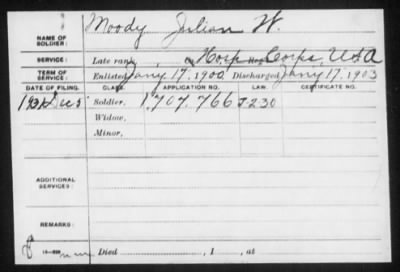 Moody Julian W.
NAME OF SOLDIER:
SERVICE: Late rank, Hosp Corps, USA
TERM OF SERVICE: Enlisted Jan'y 17, 1900 Discharged Jan'y 17, 1903
DATE OF FILING. CLASS. APPLICATION NO. LAW. CERTIFICATE NO.
Soldier, 1,707,766
Widow,
Minor,
ADDITIONAL SERVICES:
REMARKS:
Died , 1 , at